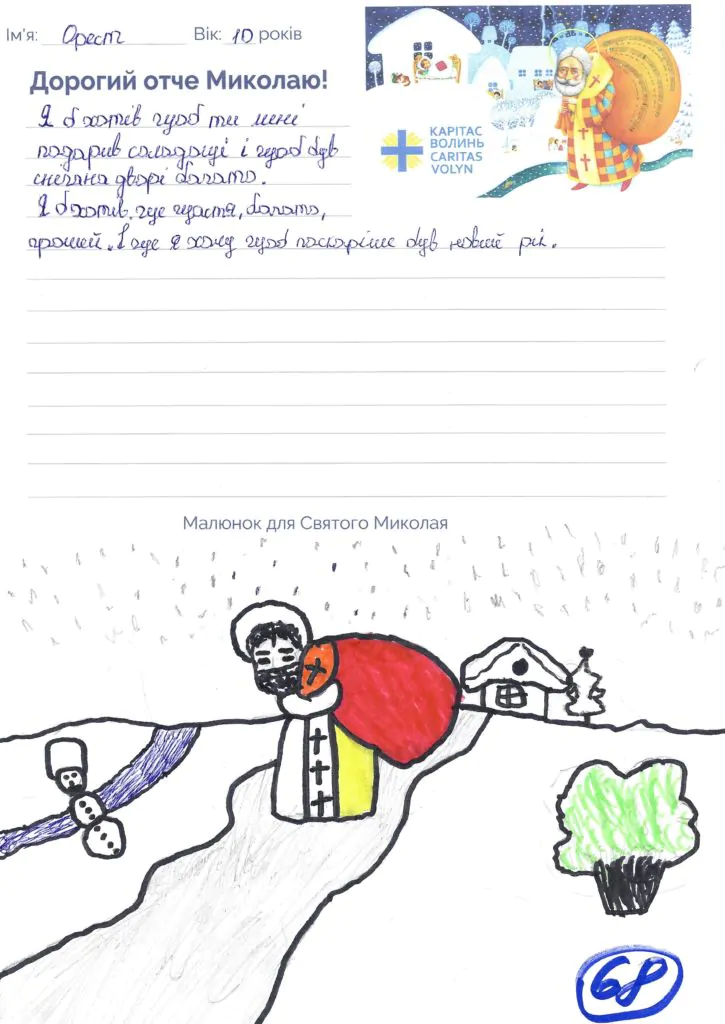 Ім'я: Орест Вік: 10 років
Дорогий отче Миколаю!
Я б хотів щоб ти мені
подарив солодощі і щоб був
сніг на дворі багато.
Я б хотів, ще щастя, багато,
грошей. І ще я хочу щоб поскоріше був новий рік.
КАРІТАС
ВОЛИНЬ
CARITAS
VOLYN
Малюнок для Святого Миколая
68